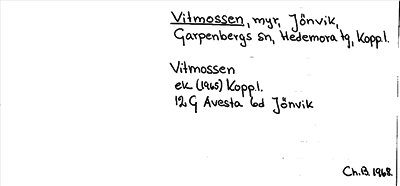 Vitmossen, myr, Jönvik,
Garpenbergs sn, Hedemora tg, Koppl.
Vitmossen
ek (1965) Koppl.
12G Avesta 6d Jönvik
Ch.B. 1968.